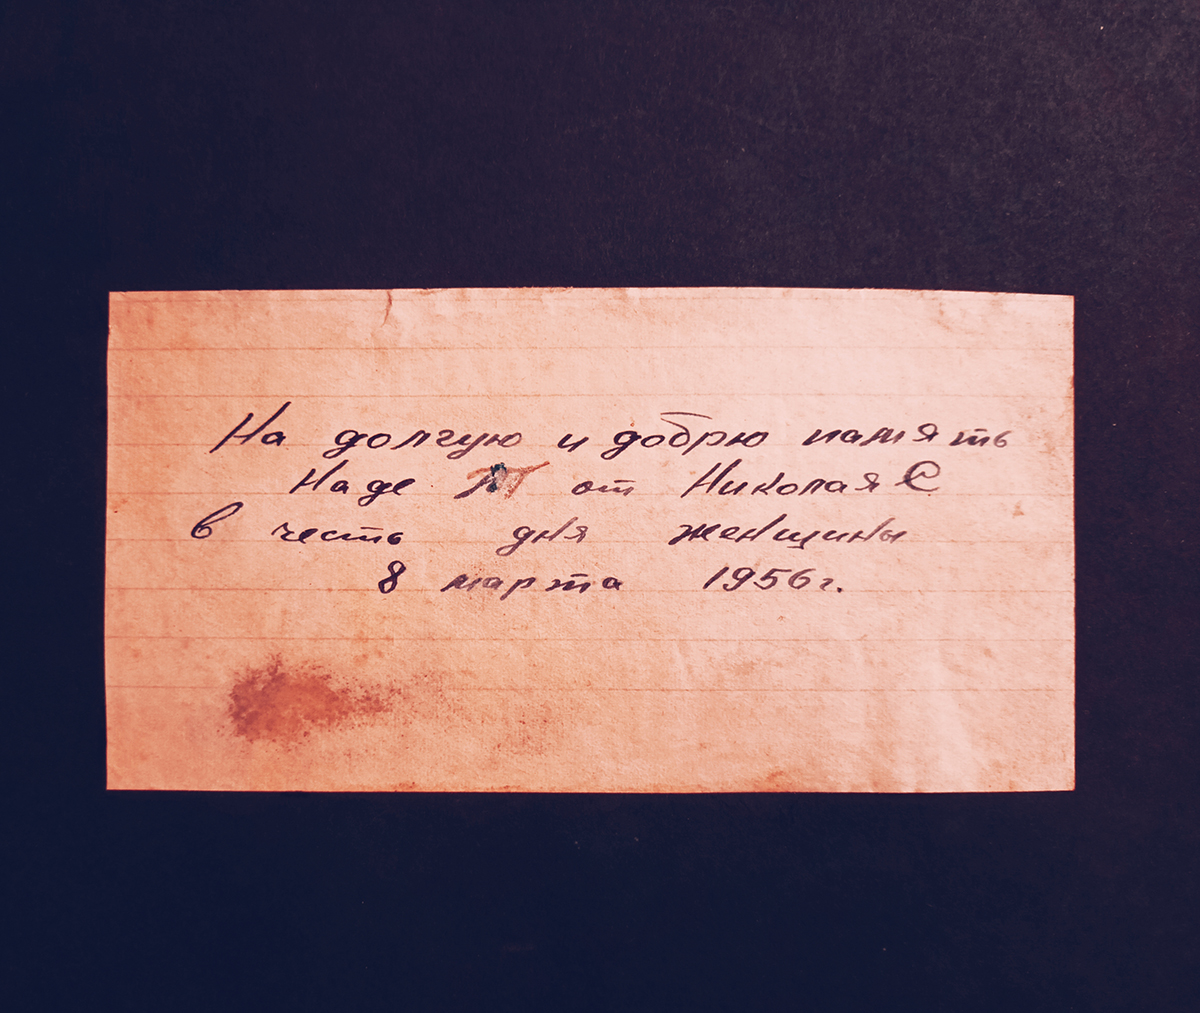 На долгую и добрю память
Наде от Николая С
в честь дня женщины
8 марта 1956г.